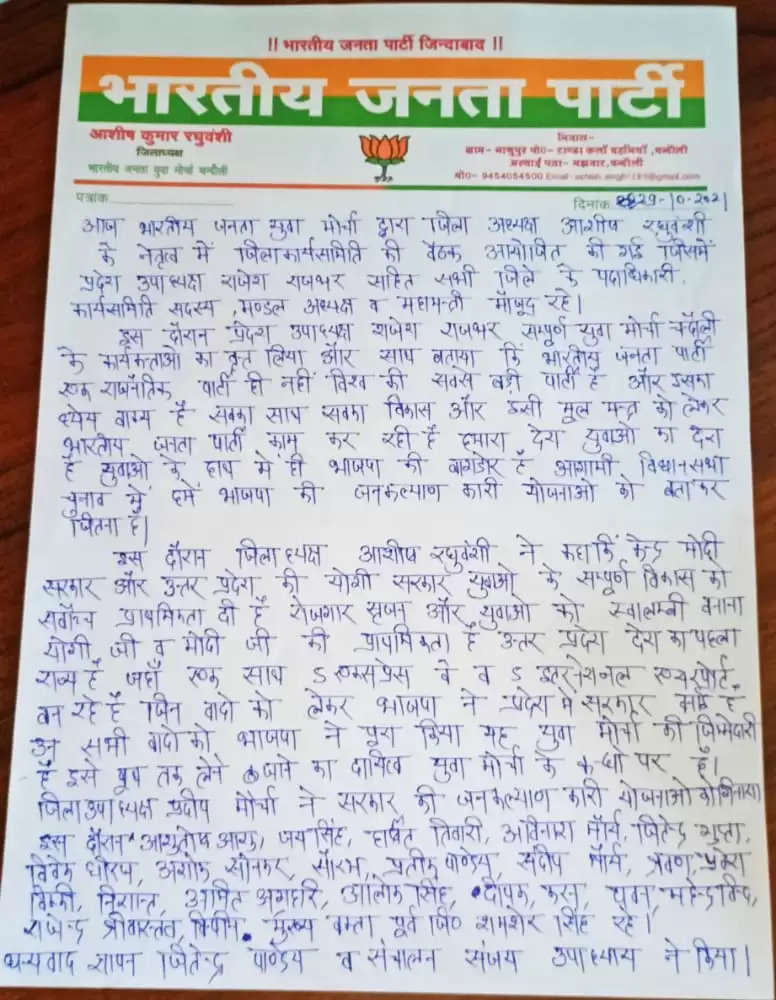 !! भारतीय जनता पार्टी जिन्दाबाद !!
भारतीय जनता पार्टी
आशीष कुमार रघुवंशी
जिलाध्यक्ष
भारतीय जनता युवा मोर्चा चन्दौली
निवास-
ग्राम- नाथुपुर पो०- टाण्डा कलाँ चन्दौली
अस्थाई पता- मझवार, चन्दौली
मो०- 9454054500
पत्रांक
दिनांक 29-10-2021
आज भारतीय जनता युवा मोर्चा द्वारा जिला अध्यक्ष आशीष रघुवंशी
के नेतृत्व में जिला कार्यसमिति की बैठक आयोजित की गई जिसमें
प्रदेश उपाध्यक्ष राजेश राजभर सहित सभी जिले के पदाधिकारी,
कार्यसमिति सदस्य, मण्डल अध्यक्ष व महामन्त्री मौजूद रहे।
इस दौरान प्रदेश उपाध्यक्ष राजेश राजभर सम्पूर्ण युवा मोर्चा चंदौली
के कार्यकताओ का वृत लिया और साथ बताया कि भारतीय जनता पार्टी
एक राजनैतिक पार्टी ही नहीं विश्व की सबसे बड़ी पार्टी है और इसका
ध्येय वाक्य है सबका साथ सबका विकास और इसी मूल मन्त्र को लेकर
भारतीय जनता पार्टी काम कर रही है हमारा देश युवाओ का देश
है युवाओ के हाथ में ही भाजपा की बागडोर है आगामी विधानसभा
चुनाव में हमें भाजपा की जनकल्याण कारी योजनाओ को बताकर
जितना है।
इस दौरान जिलाध्यक्ष आशीष रघुवंशी ने कहा कि केन्द्र मोदी
सरकार और उत्तर प्रदेश की योगी सरकार युवाओ के सम्पूर्ण विकास को
सर्वोच्च प्राथमिकता दी है रोजगार सृजन और युवाओ को स्वालम्बी बनाना
योगी जी व मोदी जी की प्राथमिकता है उत्तर प्रदेश देश का पहला
राज्य है जहाँ एक साथ 5 एक्सप्रेस वे व 5 इंटरनेशनल एयरपोर्ट
बन रहे है जिन वादो को लेकर भाजपा ने प्रदेश में सरकार बनाई है
उन सभी वादो को भाजपा ने पूरा किया यह युवा मोर्चा की जिम्मेदारी
है इसे बूथ तक लेके जाने का दायित्व युवा मोर्चा के कन्धो पर है।
जिला उपाध्यक्ष प्रदीप मौर्या ने सरकार की जनकल्याण कारी योजनाओ को गिनाया
इस दौरान आशुतोष आशु, जय सिंह, हर्षित तिवारी, अविनाश मौर्य, जितेन्द्र गुप्ता,
विवेक, अशोक सोनकर, सौरभ, प्रतीक पाण्डेय, संदीप मौर्य, श्रवण,
विक्की, निशान्त, अमित अग्रहरि, आलोक सिंह, दीपक, करन, पवन,
राजेन्द्र श्रीवास्तव, विपीन. मुख्य वक्ता पूर्व जि० शमशेर सिंह रहे।
धन्यवाद ज्ञापन जितेन्द्र पाण्डेय व संचालन संजय उपाध्याय ने किया।